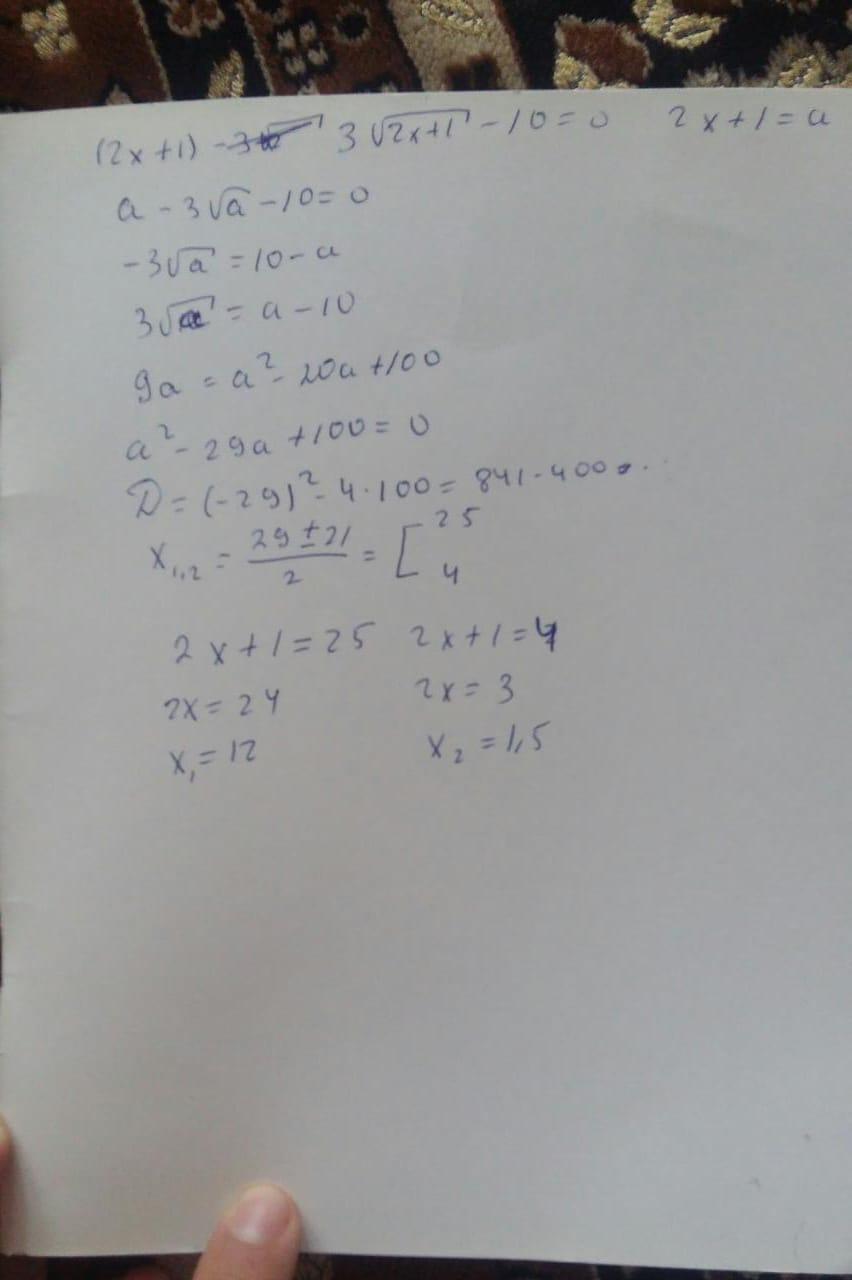 (2x+1) - 3√(2x+1) - 10 = 0 2x+1 = a
a - 3√a - 10 = 0
-3√a = 10 - a
3√a = a - 10
9a = a² - 20a + 100
a² - 29a + 100 = 0
D = (-29)² - 4·100 = 841 - 400
x₁,₂ = (29 ± 21)/2 = [25 4
2x+1 = 25 2x+1 = 4
2x = 24 2x = 3
x₁ = 12 x₂ = 1,5